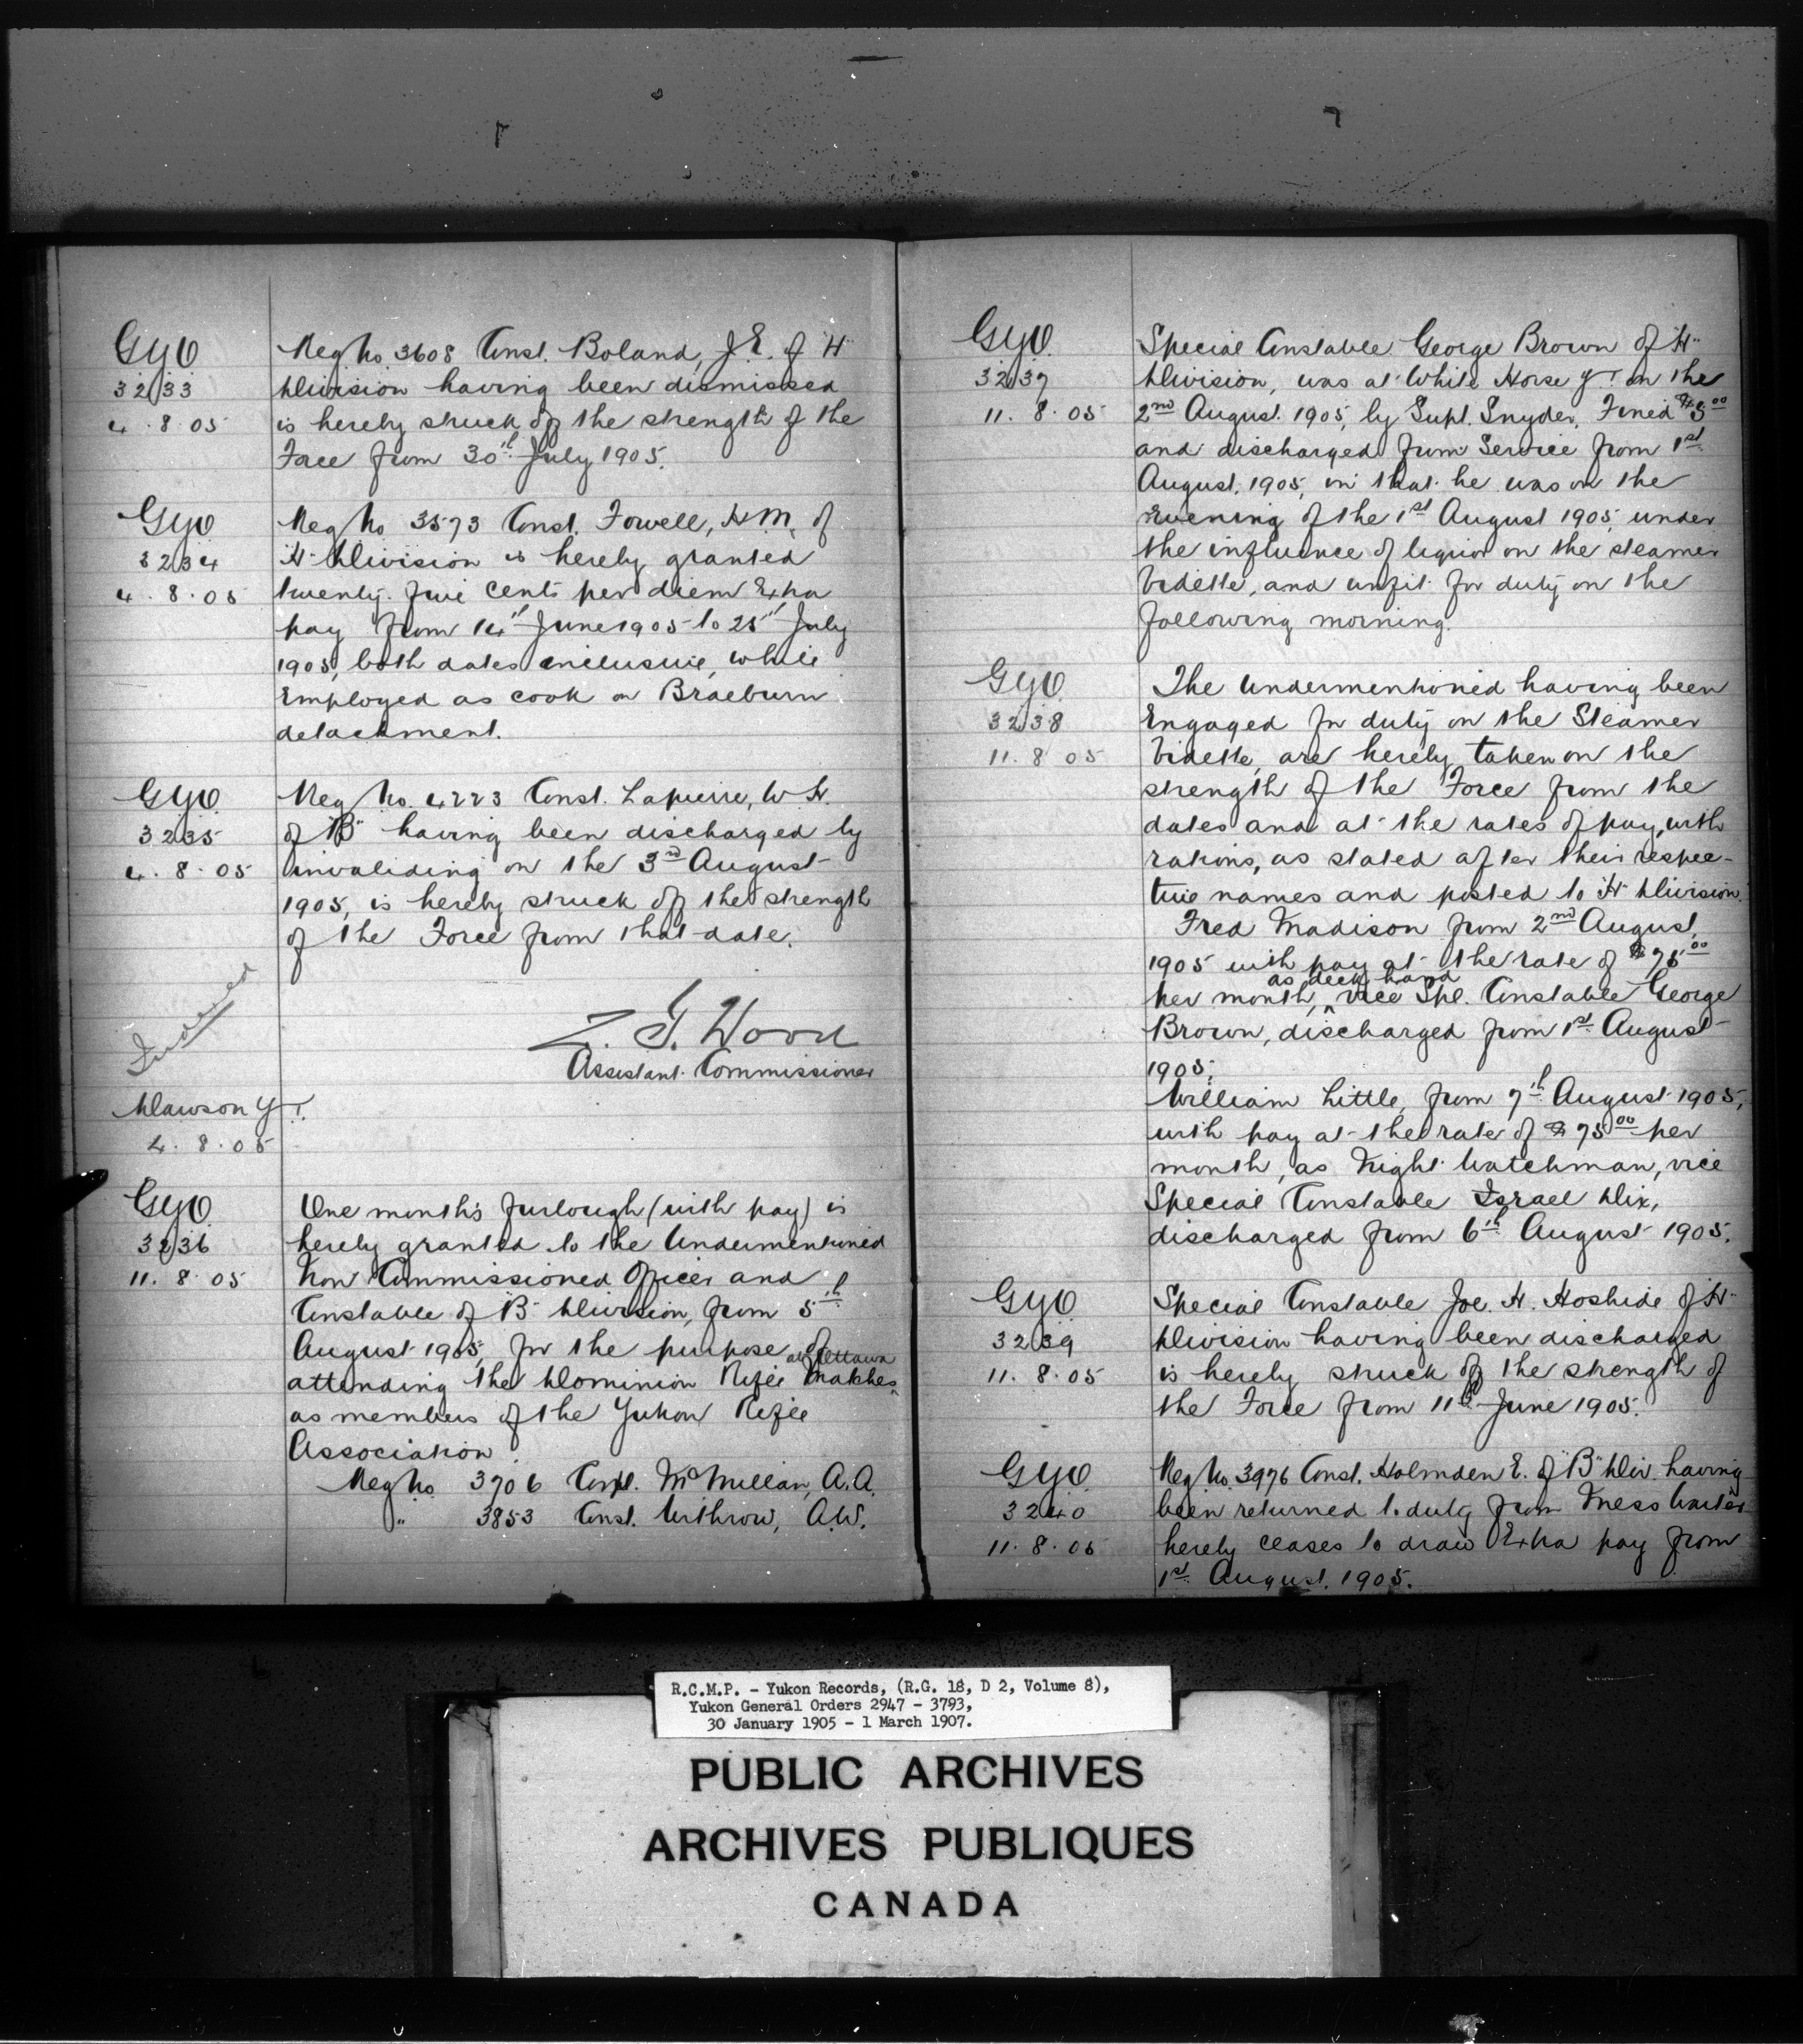 GYO
3233
4.8.05
Reg No 3608 Const. Boland, J.E. of "H"
Division having been dismissed
is hereby struck off the strength of the
Force from 30th July 1905.
GYO
3234
4.8.05
Reg No 3573 Const. Fowell, H.M. of
"H" Division is hereby granted
twenty five cents per diem Extra
pay from 14th June 1905 to 25th July
1905, both dates inclusive, while
Employed as cook on Braeburn
detachment.
GYO
3235
4.8.05
Reg No. 4223 Const. Lapierre, W.H.
of "B" having been discharged by
invaliding on the 3rd August
1905, is hereby struck off the strength
of the Force from that date.
Z. T. Wood
Assistant Commissioner
Dawson Y.T.
4.8.05
GYO
3236
11.8.05
One month's furlough (with pay) is
hereby granted to the Undermentioned
Non Commissioned Officer and
Constable of "B" Division, from 5th
August 1905, for the purpose of
attending the Dominion Rifle Matches at Ottawa
as members of the Yukon Rifle
Association.
Reg No 3706 Corpl. McMillan, A.A.
" 3853 Const. Withrow, A.W.
GYO
3237
11.8.05
Special Constable George Brown of "H"
Division, was at White Horse Y.T. on the
2nd August 1905, by Supt. Snyder, Fined $5.00
and discharged from Service from 1st
August, 1905, in that he was on the
Evening of the 1st August 1905, under
the influence of liquor on the steamer
Vidette, and unfit for duty on the
following morning.
GYO
3238
11.8.05
The Undermentioned having been
Engaged for duty on the Steamer
Vidette, are hereby taken on the
strength of the Force from the
dates and at the rates of pay, with
rations, as stated after their respec-
tive names and posted to "H" Division.
Fred Madison from 2nd August,
1905 with pay at the rate of $75.00
per month, as deck hand vice Spl. Constable George
Brown, discharged from 1st August
1905.
William Little, from 7th August 1905,
with pay at the rate of $75.00 per
month, as Night Watchman, vice
Special Constable Israel Dix,
discharged from 6th August 1905.
GYO
3239
11.8.05
Special Constable Joe. H. Hoshide of "H"
Division having been discharged
is hereby struck off the strength of
the Force from 11th June 1905.
GYO
3240
11.8.05
Reg No. 3976 Const. Holmden E. of "B" Div. having
been returned to duty from Mess Waiter
hereby ceases to draw Extra pay from
1st August. 1905.
R.C.M.P. - Yukon Records, (R.G. 18, D 2, Volume 8),
Yukon General Orders 2947 - 3793,
30 January 1905 - 1 March 1907.
PUBLIC ARCHIVES
ARCHIVES PUBLIQUES
CANADA